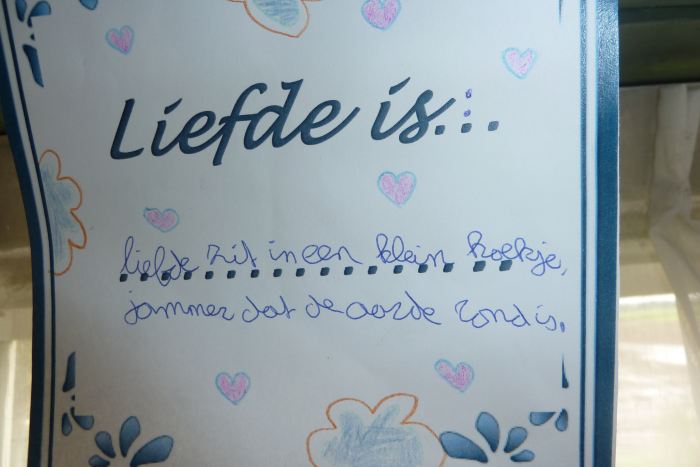 Liefde is...
liefde zit in een klein hoekje,
jammer dat de aarde rond is.